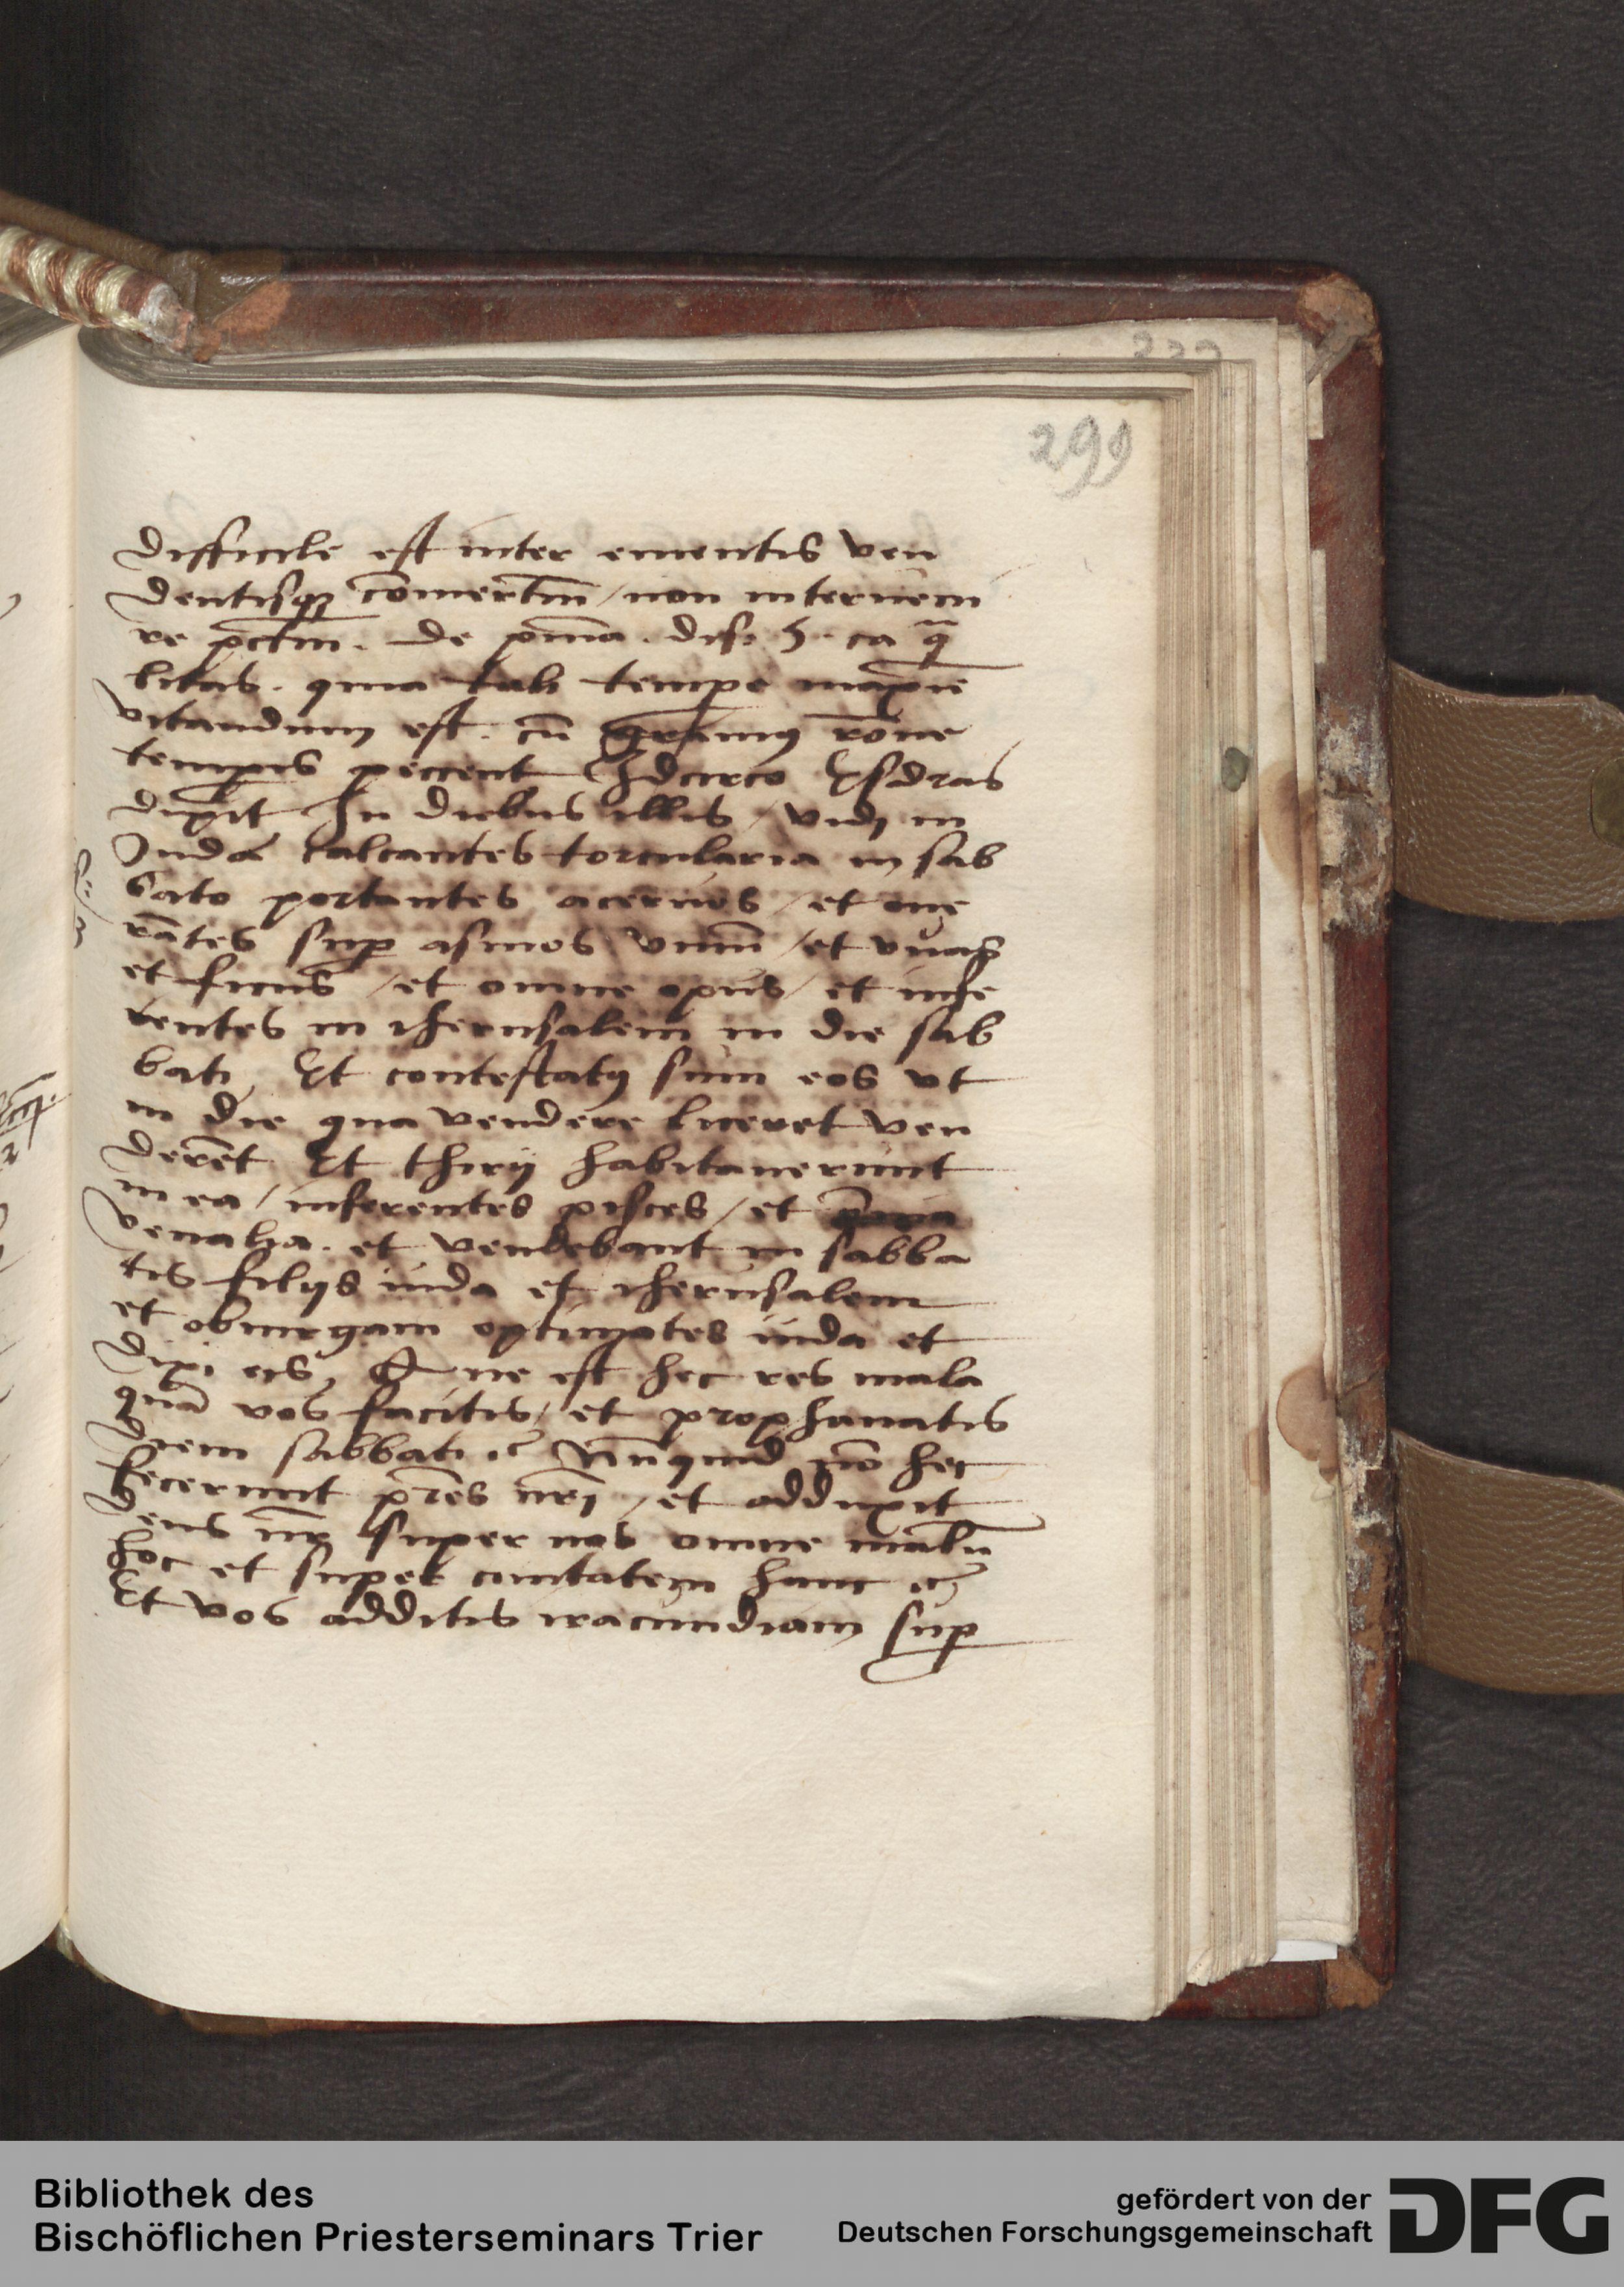 299
difficile est inter ementis ven
dentisqꝫ co̅mertiu̅ / non interueni
re pctm̅. De pnia̅. dis: 5. ca qͣ
litas. quia tali tempe maxie̅
vitandum est. cu̅ grauiꝰ ro̅ne
tempis peccent Idcirco Esdras
dixit In diebus illis / vidi in
Juda calcantes torcularia in sab
bato portantes aceruos / et one
ra̅tes suꝑ asinos vinu̅ / et vuas
et ficus / et omne opus / et infe
rentes in iherusalem in die sab
bati, Et contestatꝰ sum eos vt
in die qua vendere liceret ven
dere̅t Et thirij habitauerunt
in ea / inferentes pisces / et
venalia. et vendebant in sabba
tis filijs iuda et iherusalem
et obiurgaui optimates iuda et
dixi eis, Que est hec res mala
qua̅ vos facitis / et prophanatis
diem sabbati ⁊c Nu̅quid no̅ hec
fecerunt pr̅es nr̅i / et adduxit
deus nr̅ super nos omne malu̅
hoc et super ciuitatem hanc ⁊c
Et vos additis iracundiam suꝑ
Bibliothek des
Bischöflichen Priesterseminars Trier
gefördert von der
Deutschen Forschungsgemeinschaft
DFG